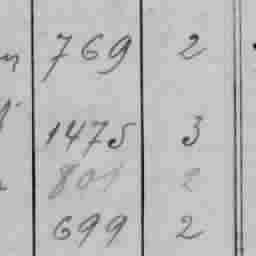 769 2
1475 3
801 2
699 2